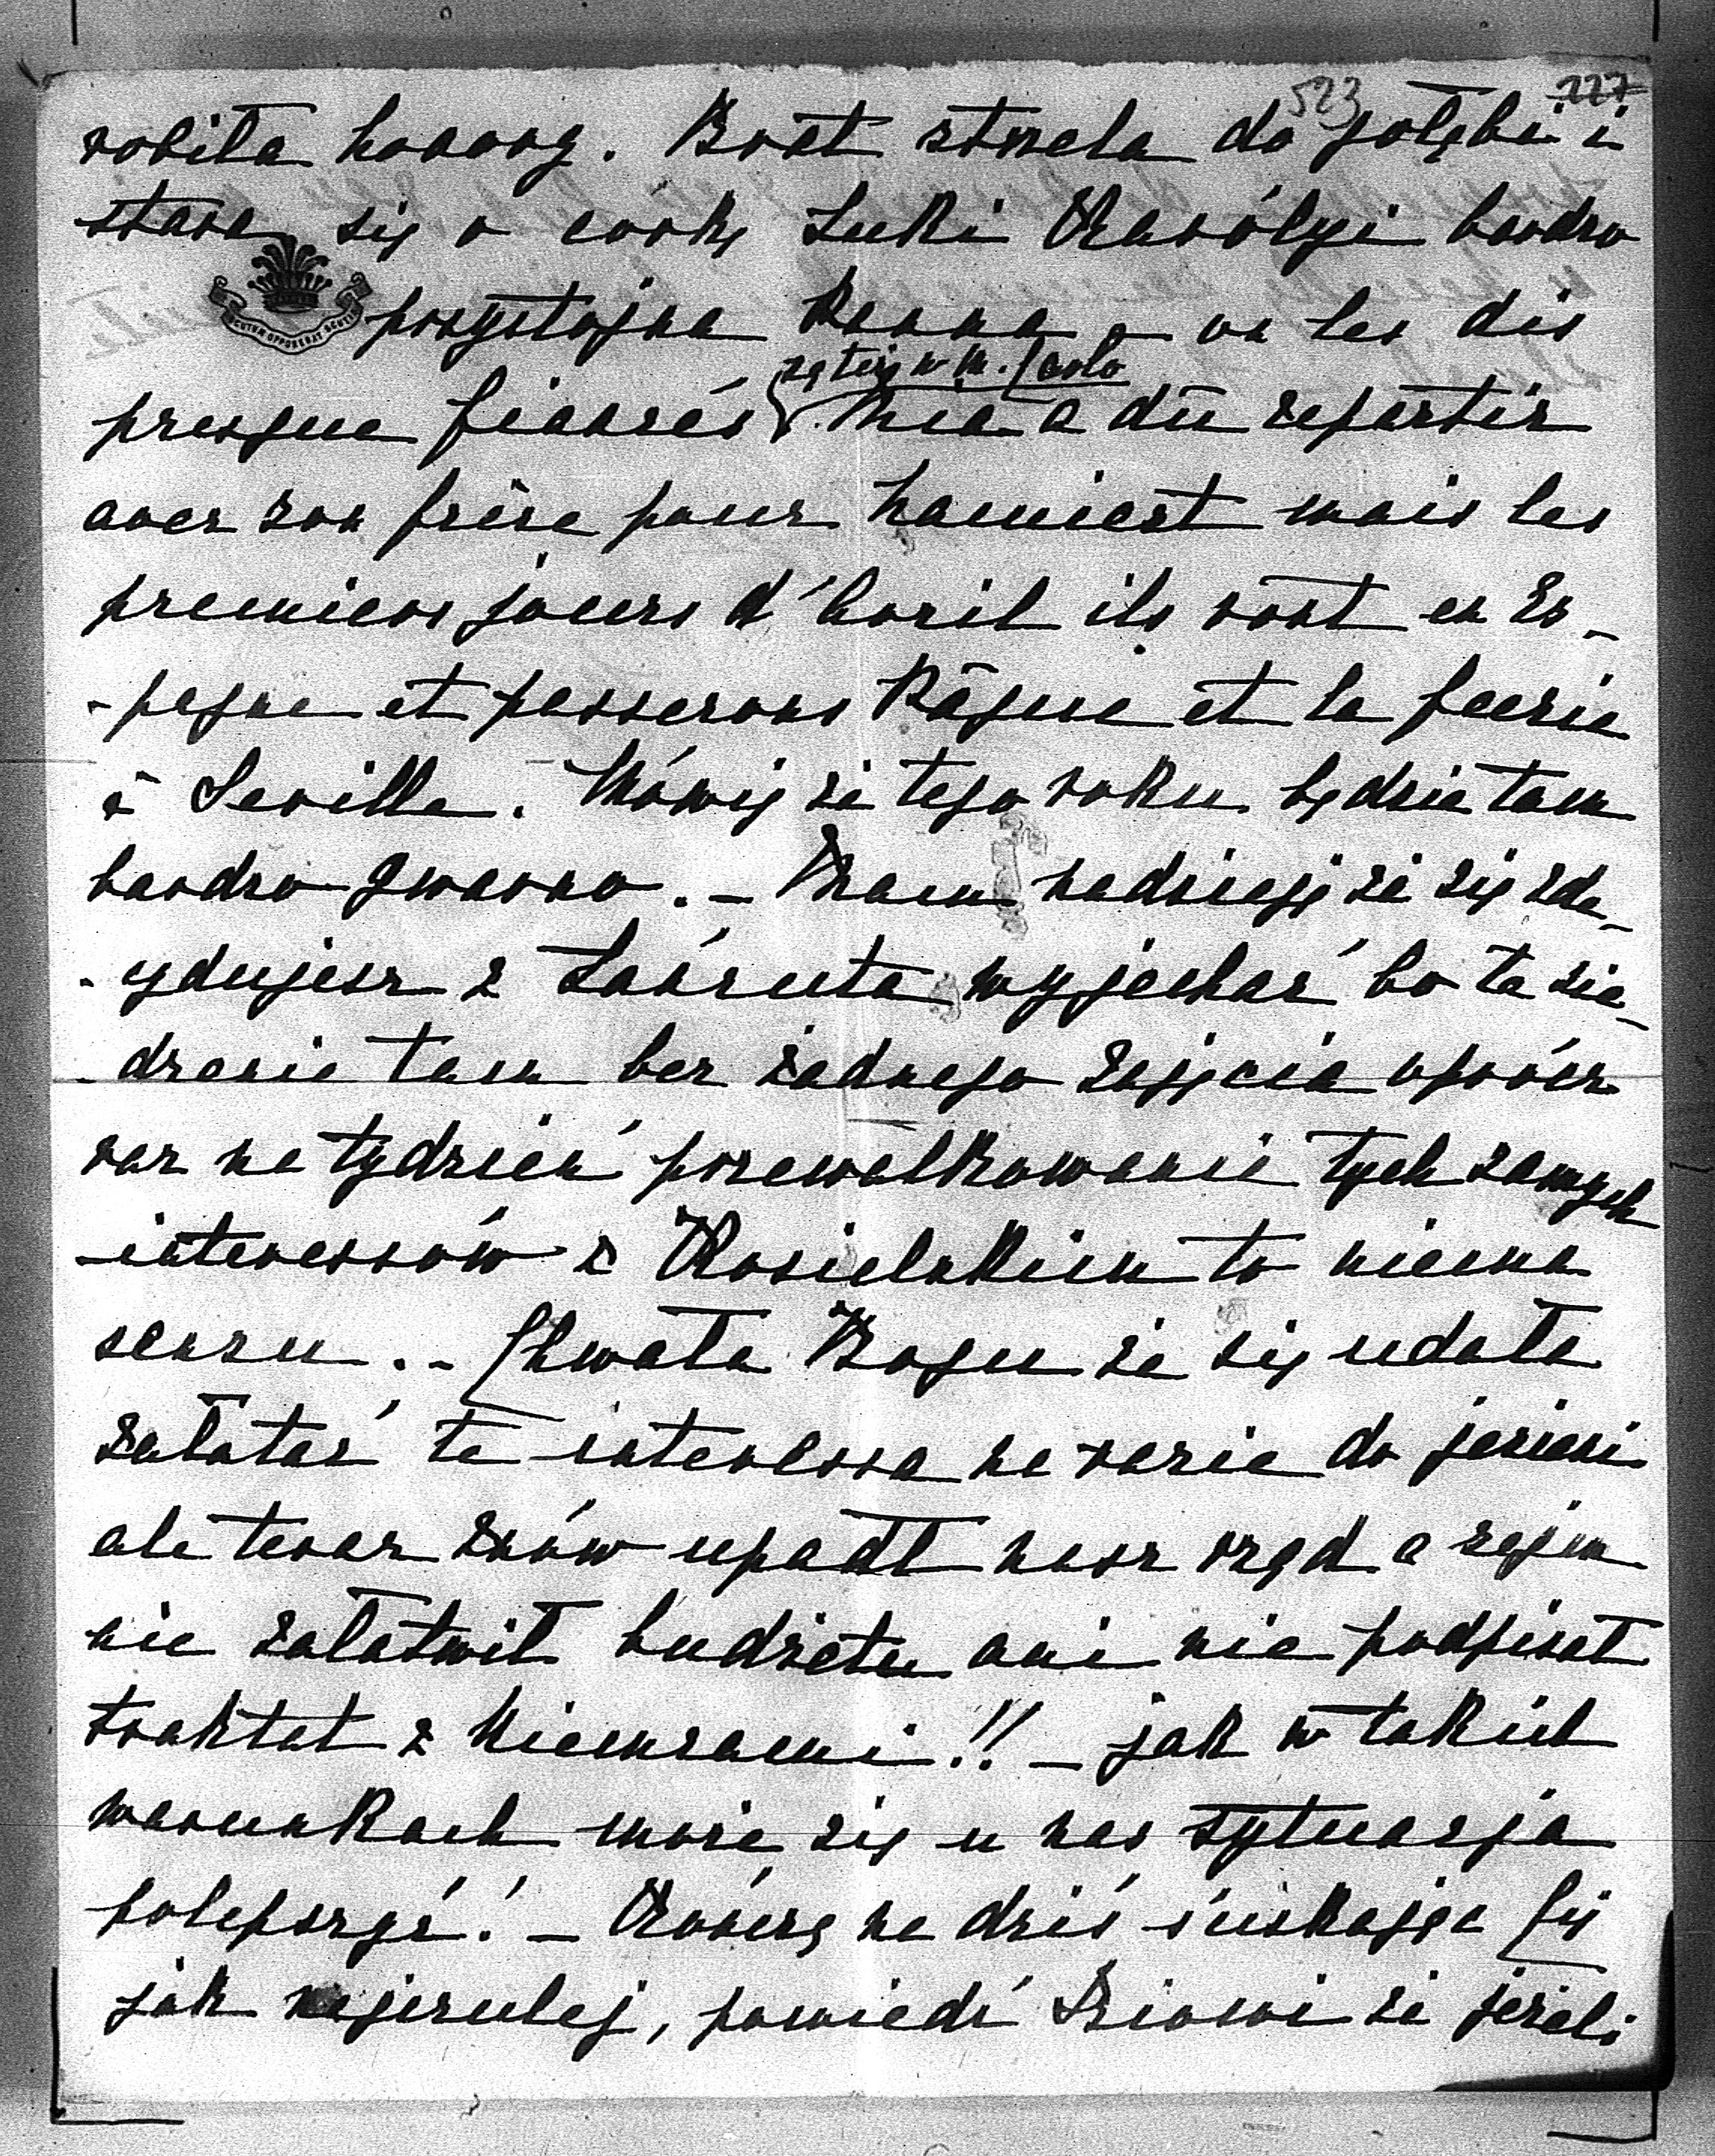 523 227
robiła honory. Brat strzela do gołębi i
stara się o córkę Luki Károlyi bardzo
SCUTUM OPPONEBAT SCUTIS
przystojna panna – on les dis
są też w M. Carlo
presque fiancés. Mia a dû repartir
avec son frère pour Łańcut mais les
premiers jours d'Avril ils vont en Es-
-pagne et passerons Pâque et la feerie
à Seville. Mówię że tego roku będzie tam
bardzo gwarno. – Mam nadzieję że się zde-
-cydujesz z Łańcuta wyjechać bo te sie-
-dzenie tam bez żadnego zajęcia oprócz
raz na tydzień przewałkowanie tych samych
interessów z Kosielskim to niema
sensu. – Chwała Bogu że się udało
załatać te interessa na razie do jesieni
ale teraz znów upadł nasz rząd a sejm
nie załatwił budżetu ani nie podpisał
traktat z Niemcami!! – jak w takich
warunkach może się u nas sytuacja
polepszyć! – Kończę na dziś ściskając Cię
jak najczulej, powiedź że jeżeli